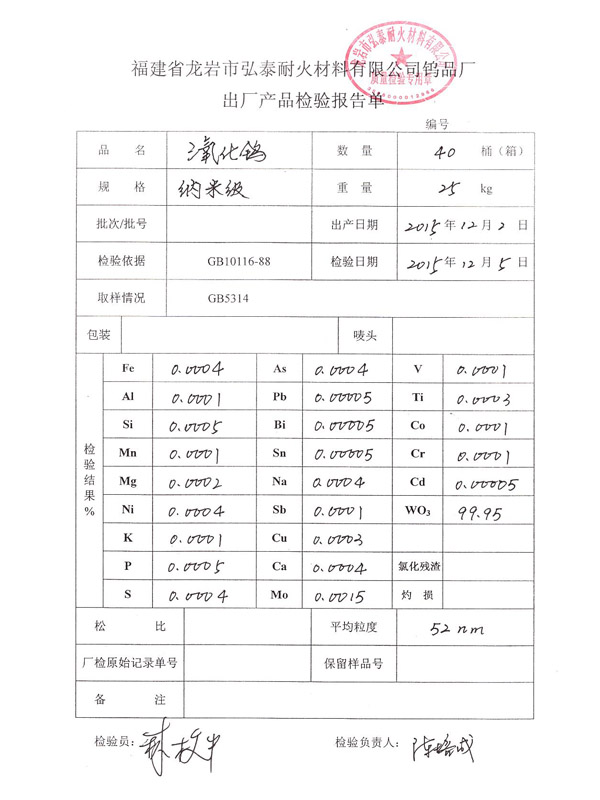 福建省龙岩市弘泰耐火材料有限公司钨品厂
出厂产品检验报告单
质量检验专用章
编号
品 名 三氧化钨 数 量 40 桶（箱）
规 格 纳米级 重 量 25 kg
批次/批号 出产日期 2015 年 12 月 2 日
检验依据 GB10116-88 检验日期 2015 年 12 月 5 日
取样情况 GB5314
包装 唛头
检验结果%
Fe 0.0004 As 0.0004 V 0.0001
Al 0.0001 Pb 0.00005 Ti 0.0003
Si 0.0005 Bi 0.00005 Co 0.0001
Mn 0.0001 Sn 0.00005 Cr 0.0001
Mg 0.0002 Na 0.0004 Cd 0.00005
Ni 0.0004 Sb 0.0001 WO₃ 99.95
K 0.0001 Cu 0.0003
P 0.0005 Ca 0.0004 氯化残渣
S 0.0004 Mo 0.0015 灼 损
松 比 平均粒度 52 nm
厂检原始记录单号 保留样品号
备 注
检验员： 检验负责人：